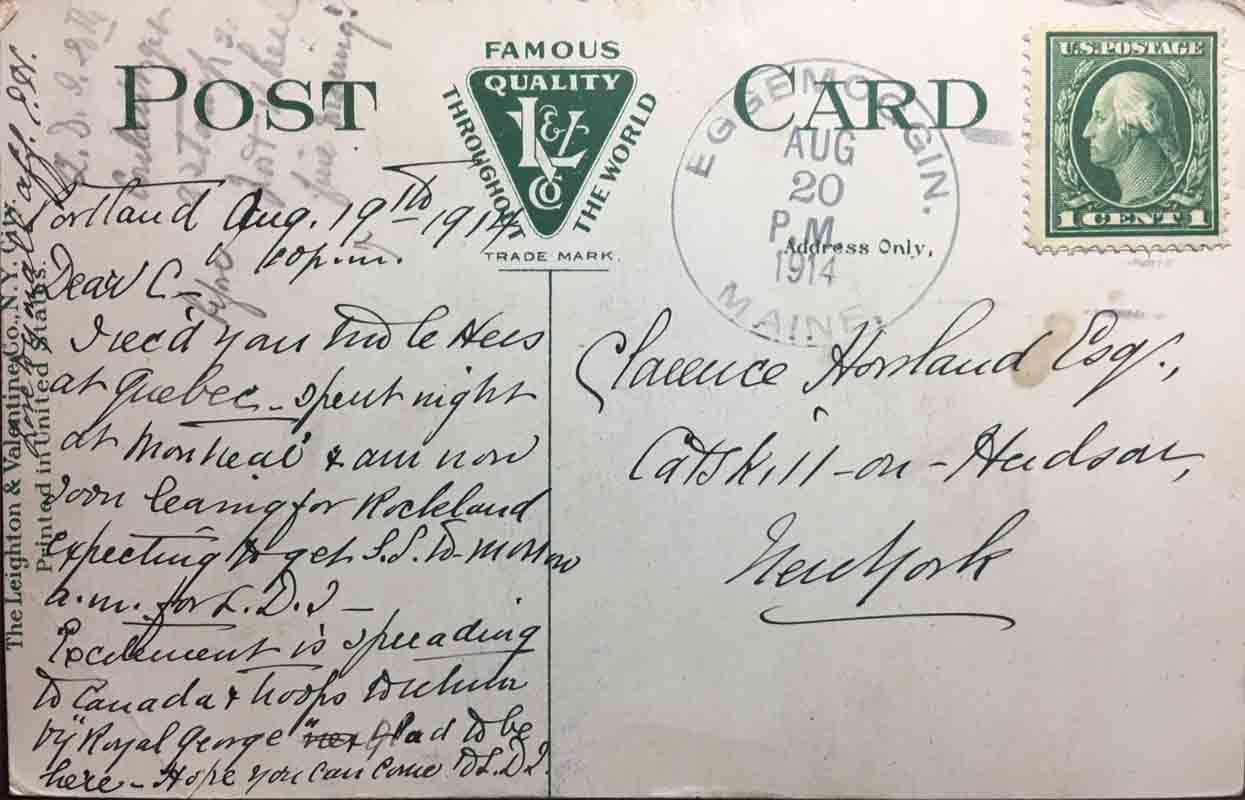 POST CARD
FAMOUS
QUALITY
THROUGHOUT THE WORLD
L & V Co
TRADE MARK.
EGGEMOGGIN.
AUG
20
P.M.
1914
MAINE.
U.S. POSTAGE
1 CENT 1
Address Only,
The Leighton & Valentine Co., N.Y. City.
Printed in United States.
L. D. I. 20th
just here
fine
Portland Aug. 19th 1914
10 p.m.
Dear C-
I rec'd your
at Quebec - spent night
at Montreal & am now
soon leaving for Rockland
expecting to get S.S. to-morrow
a.m. for L. D. I -
Excitement is spreading
to Canada & troops to
by "Royal George" Glad to be
here - Hope you can come to L.D.I.
Clarence Howland Esq.,
Catskill-on-Hudson,
New York